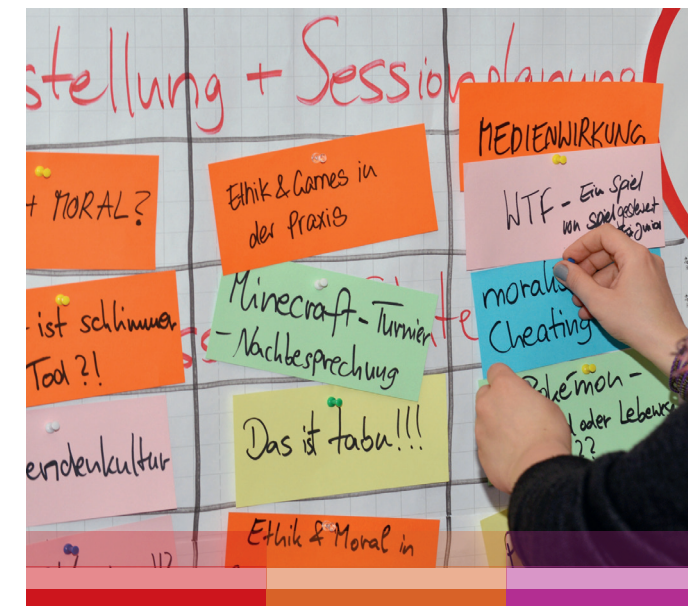 stellung + Sessionplanung
+ MORAL?
- ist schlimmer
Tod?!
Ethik & Games in
der Praxis
Minecraft - Turnier
- Nachbesprechung
Das ist tabu!!!
Ethik & Moral in
MEDIENWIRKUNG
WTF - Ein Spiel
von spielgesteuert
Cheating
Pokémon -
oder Lebewes
??